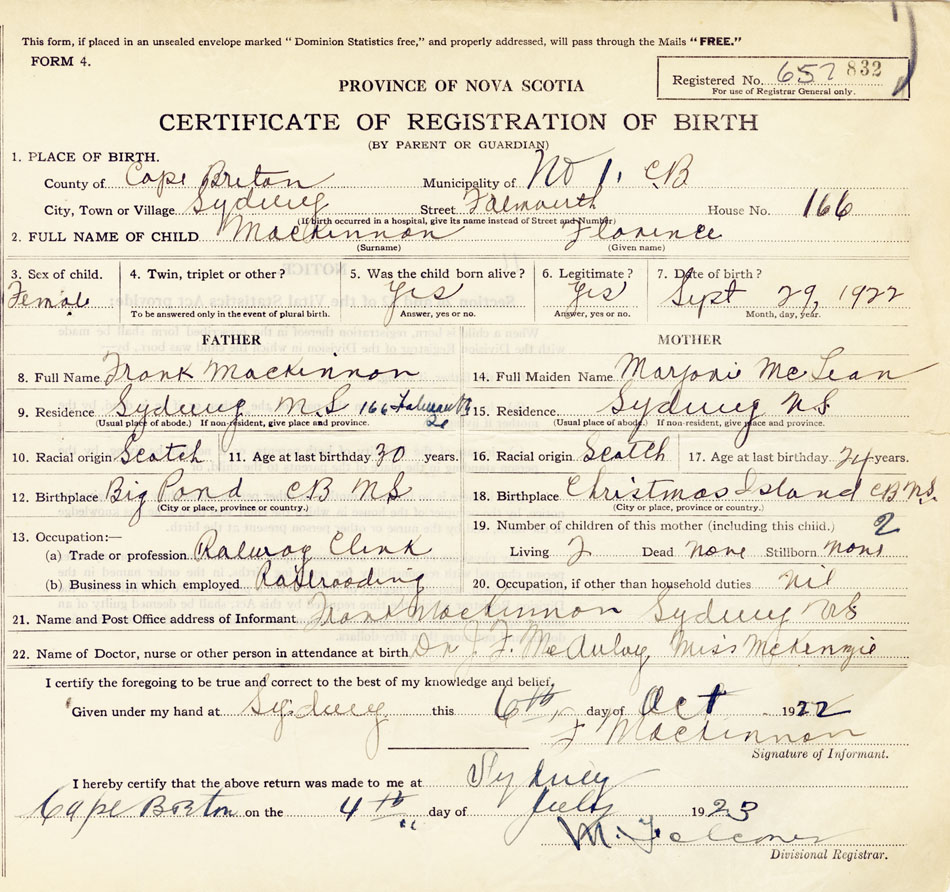 This form, if placed in an unsealed envelope marked “Dominion Statistics free,” and properly addressed, will pass through the Mails “FREE.”
FORM 4.
Registered No. 657 832
For use of Registrar General only.
PROVINCE OF NOVA SCOTIA
CERTIFICATE OF REGISTRATION OF BIRTH
(BY PARENT OR GUARDIAN)
1. PLACE OF BIRTH.
County of Cape Breton Municipality of No 1. CB
City, Town or Village Sydney Street Falmouth House No. 166
(If birth occurred in a hospital, give its name instead of Street and Number)
2. FULL NAME OF CHILD Mackinnon Florence
(Surname) (Given name)
3. Sex of child. 4. Twin, triplet or other? 5. Was the child born alive? 6. Legitimate? 7. Date of birth?
Female Yes Yes Sept 29, 1922
To be answered only in the event of plural birth. Answer, yes or no. Answer, yes or no. Month, day, year.
FATHER MOTHER
8. Full Name Frank Mackinnon 14. Full Maiden Name Marjorie McLean
9. Residence Sydney N.S 166 Falmouth 15. Residence. Sydney NS.
(Usual place of abode.) If non-resident, give place and province. (Usual place of abode.) If non-resident, give place and province.
10. Racial origin Scotch 11. Age at last birthday 30 years. 16. Racial origin Scotch 17. Age at last birthday 24 years.
12. Birthplace Big Pond CB NS 18. Birthplace Christmas Island CB NS.
(City or place, province or country.) (City or place, province or country.)
19. Number of children of this mother (including this child.) 2
13. Occupation:—
(a) Trade or profession Railway Clerk Living 2 Dead none Stillborn none
(b) Business in which employed Railroading 20. Occupation, if other than household duties nil
21. Name and Post Office address of Informant Frank Mackinnon Sydney NS
22. Name of Doctor, nurse or other person in attendance at birth Dr J. F. McAulay Miss McKenzie
I certify the foregoing to be true and correct to the best of my knowledge and belief.
Given under my hand at Sydney this 6th day of Oct 1922
F Mackinnon
Signature of Informant.
I hereby certify that the above return was made to me at Sydney
Cape Breton on the 4th day of July 1923
M. J.
Divisional Registrar.